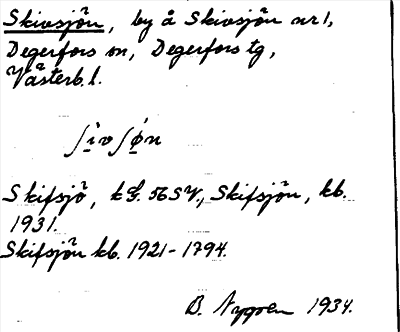 Skivsjön, by å Skivsjön nr 1,
Degerfors sn, Degerfors tg,
Västerb. l.
ʃivʃøn
Skifsjö, k G. 56 SV., Skifsjön, kb.
1931.
Skifsjön kb. 1921-1794.
B. Nygren 1934.